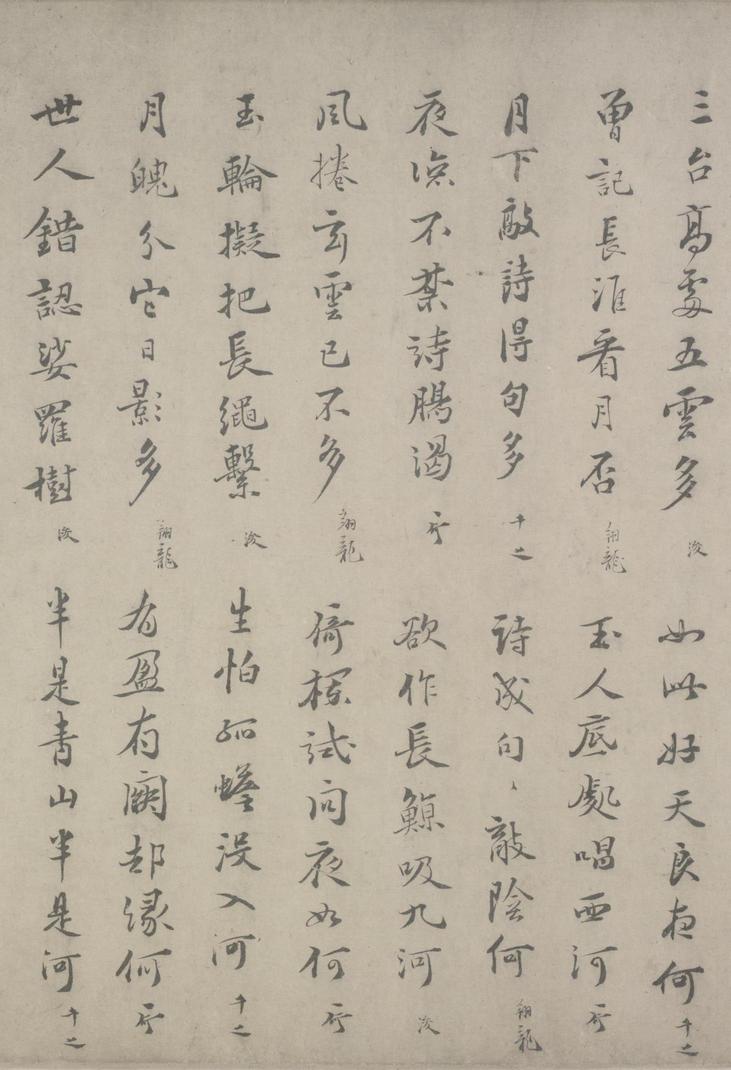 三台高處五雲多 浚 如此好天良夜何 千之
曾記長淮看月否 翔龍 玉人底處唱西河
月下敲詩得句多 千之 詩成句〻敵陰何 翔龍
夜涼不禁詩腸渴 欲作長鯨吸九河 浚
風捲玄雲已不多 翔龍 倚樓試問夜如何
玉輪擬把長繩繫 浚 生怕孤蟾没入河 千之
月魄分它日影多 翔龍 有盈有闕却緣何
世人錯認娑羅樹 浚 半是青山半是河 千之